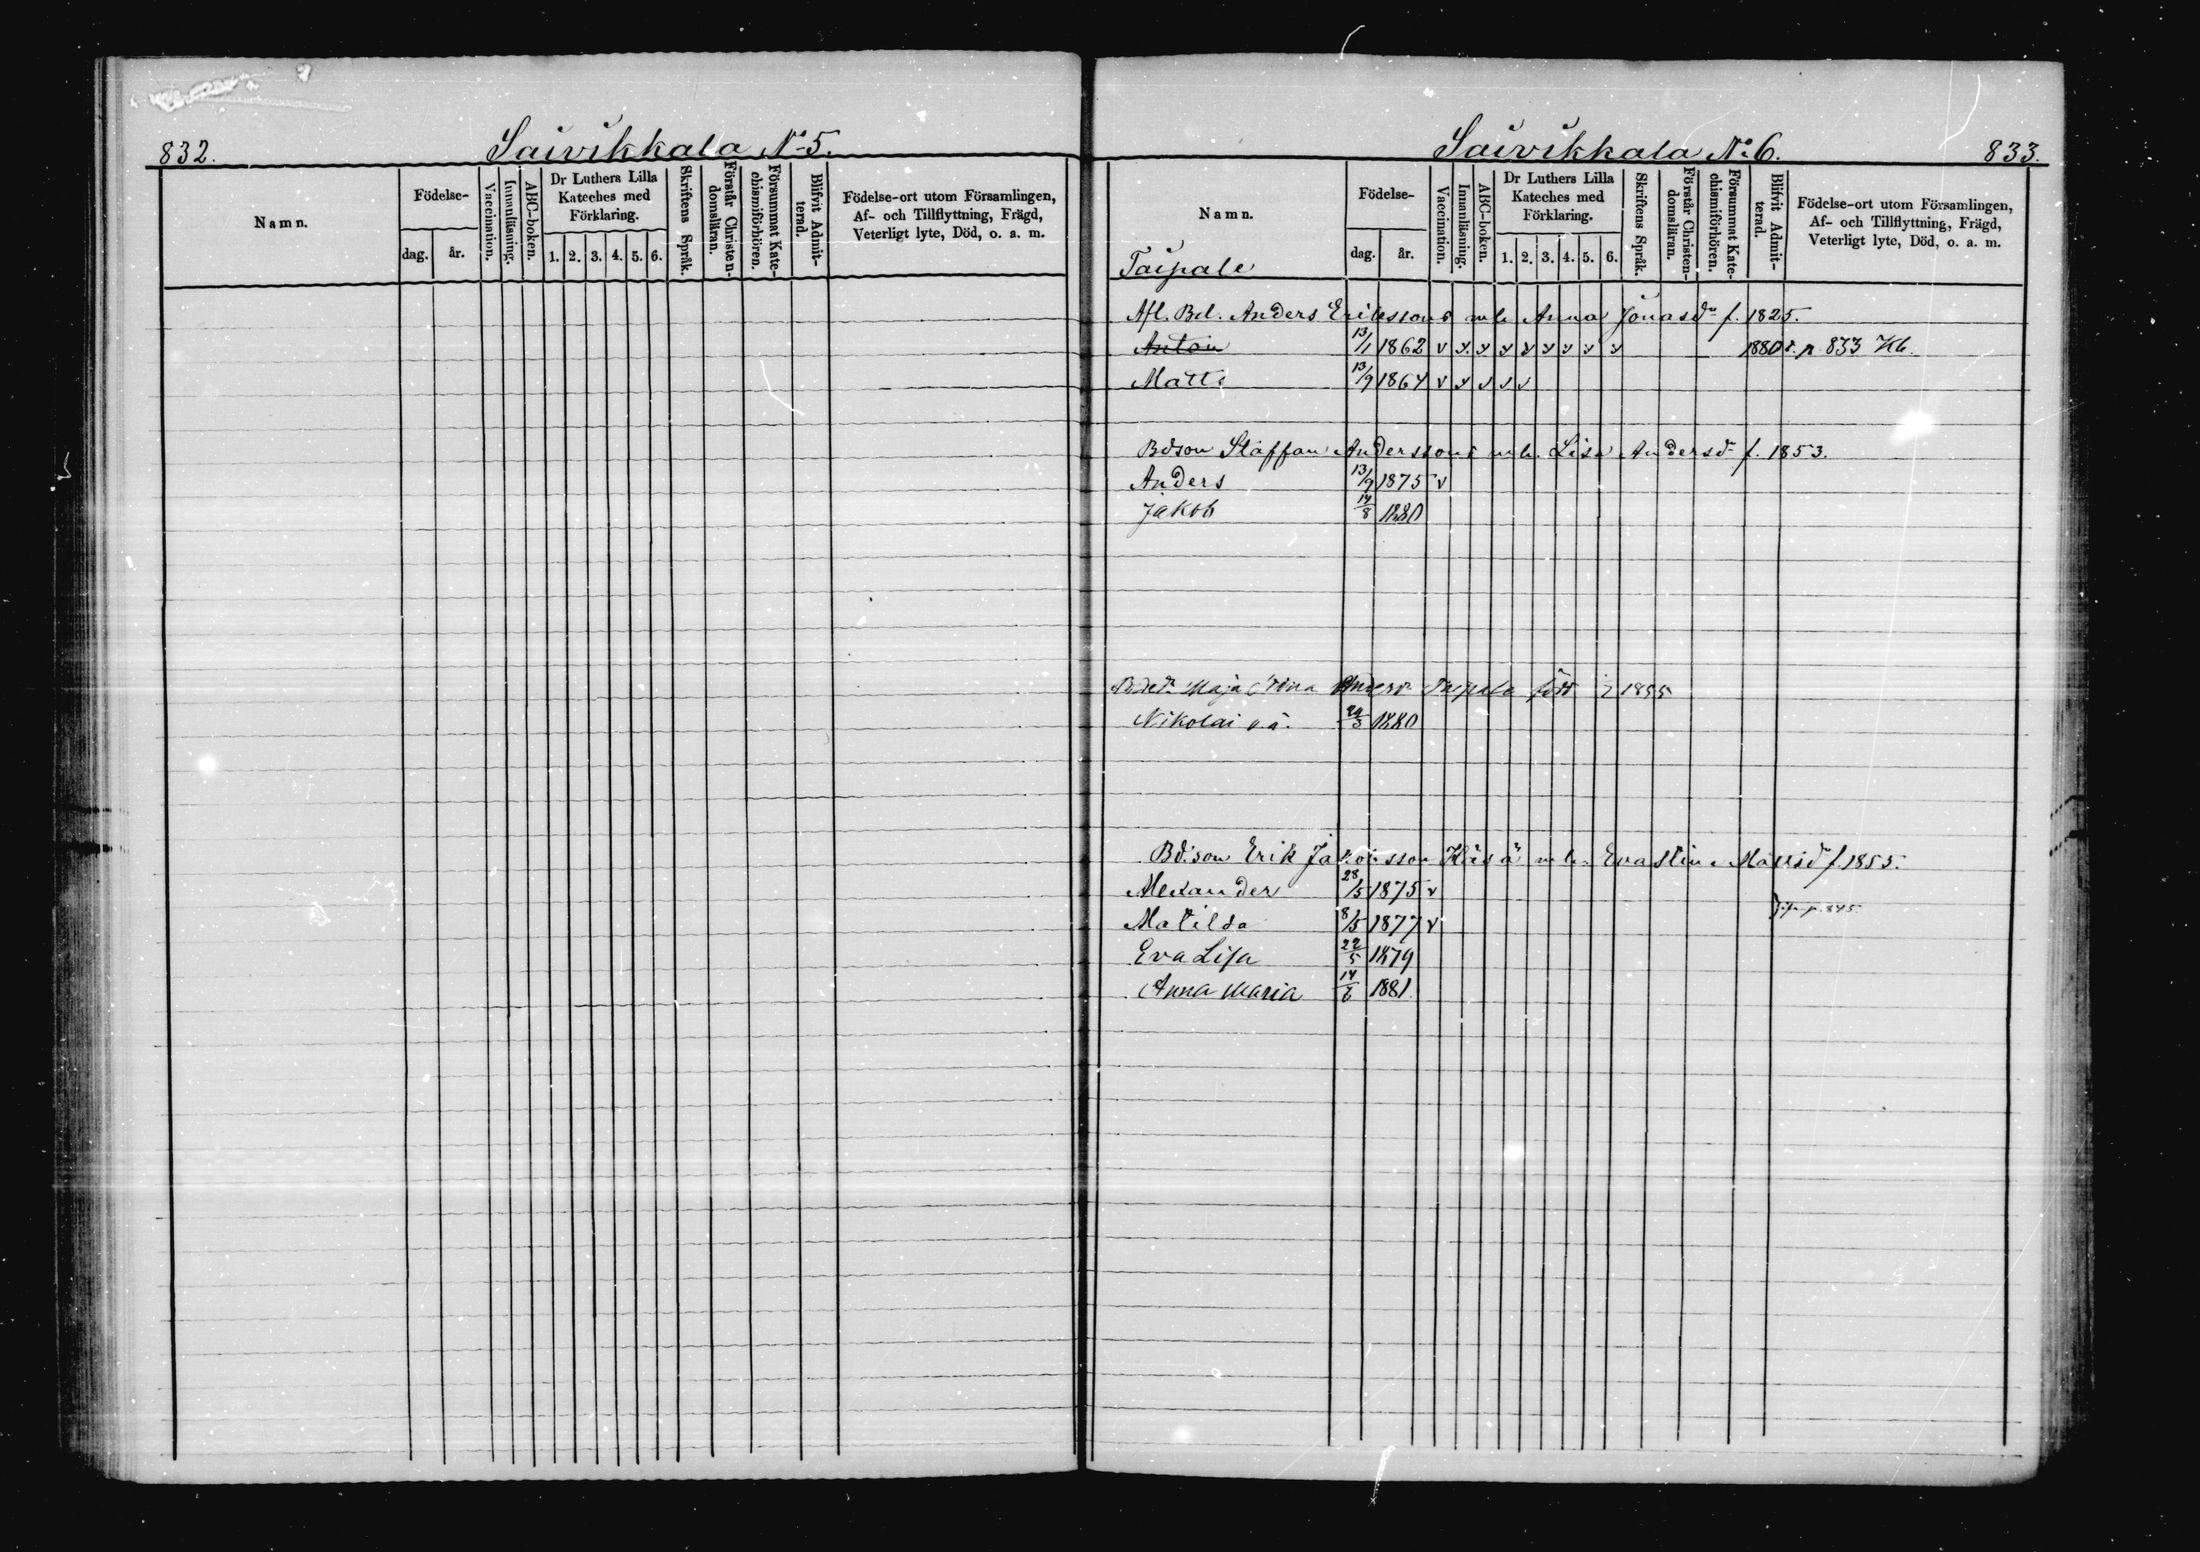 832. Saivikkala No 5.
Namn. Födelse- dag. år. Vaccination. Innanläsning. ABC-boken. Dr Luthers Lilla Kateches med Förklaring. 1. 2. 3. 4. 5. 6. Skriftens Språk. Förstår Christendomsläran. Försummat Katechismiförhören. Blifvit Admitterad. Födelse-ort utom Församlingen, Af- och Tillflyttning, Frägd, Veterligt lyte, Död, o. a. m.
Saivikkala No 6. 833.
Namn. Födelse- dag. år. Vaccination. Innanläsning. ABC-boken. Dr Luthers Lilla Kateches med Förklaring. 1. 2. 3. 4. 5. 6. Skriftens Språk. Förstår Christendomsläran. Försummat Katechismiförhören. Blifvit Admitterad. Födelse-ort utom Församlingen, Af- och Tillflyttning, Frägd, Veterligt lyte, Död, o. a. m.
Taipale
Afl. Bd. Anders Erikssons mh. Anna Jonasdr f. 1825.
Anton 13/1 1862 v v v v v v v v v 1880 p. 833 Kb.
Matts 13/9 1864 v v v v v
Bdson Staffan Anderssons mh. Lisa Andersdr f. 1853.
Anders 13/9 1875 v
Jakob 14/8 1880
Maja Taipale född 1855
Nikolai o.ä. 1880
Bd:son Erik Jakobsson mh. Evastina Mattsdr f. 1855.
Alexander 28/5 1875 v
Matilda 8/5 1877 v p. 845.
Eva Lisa 22/5 1879
Anna Maria 14/6 1881